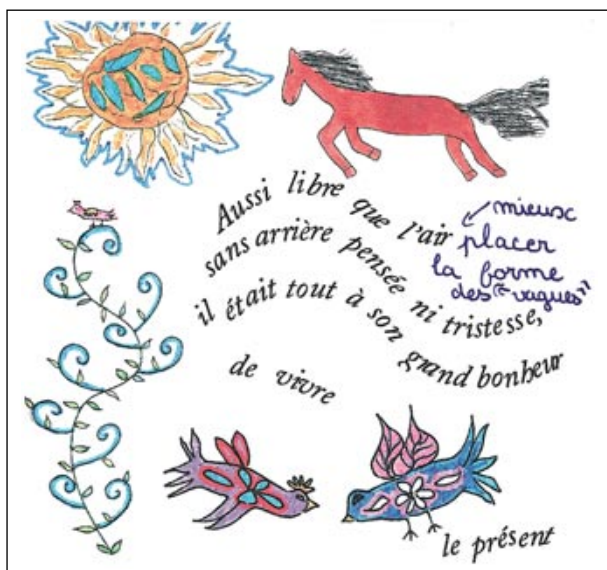 Aussi libre que l'air
sans arrière pensée ni tristesse,
il était tout à son grand bonheur
de vivre
le présent
mieux
placer
la forme
des "vagues"